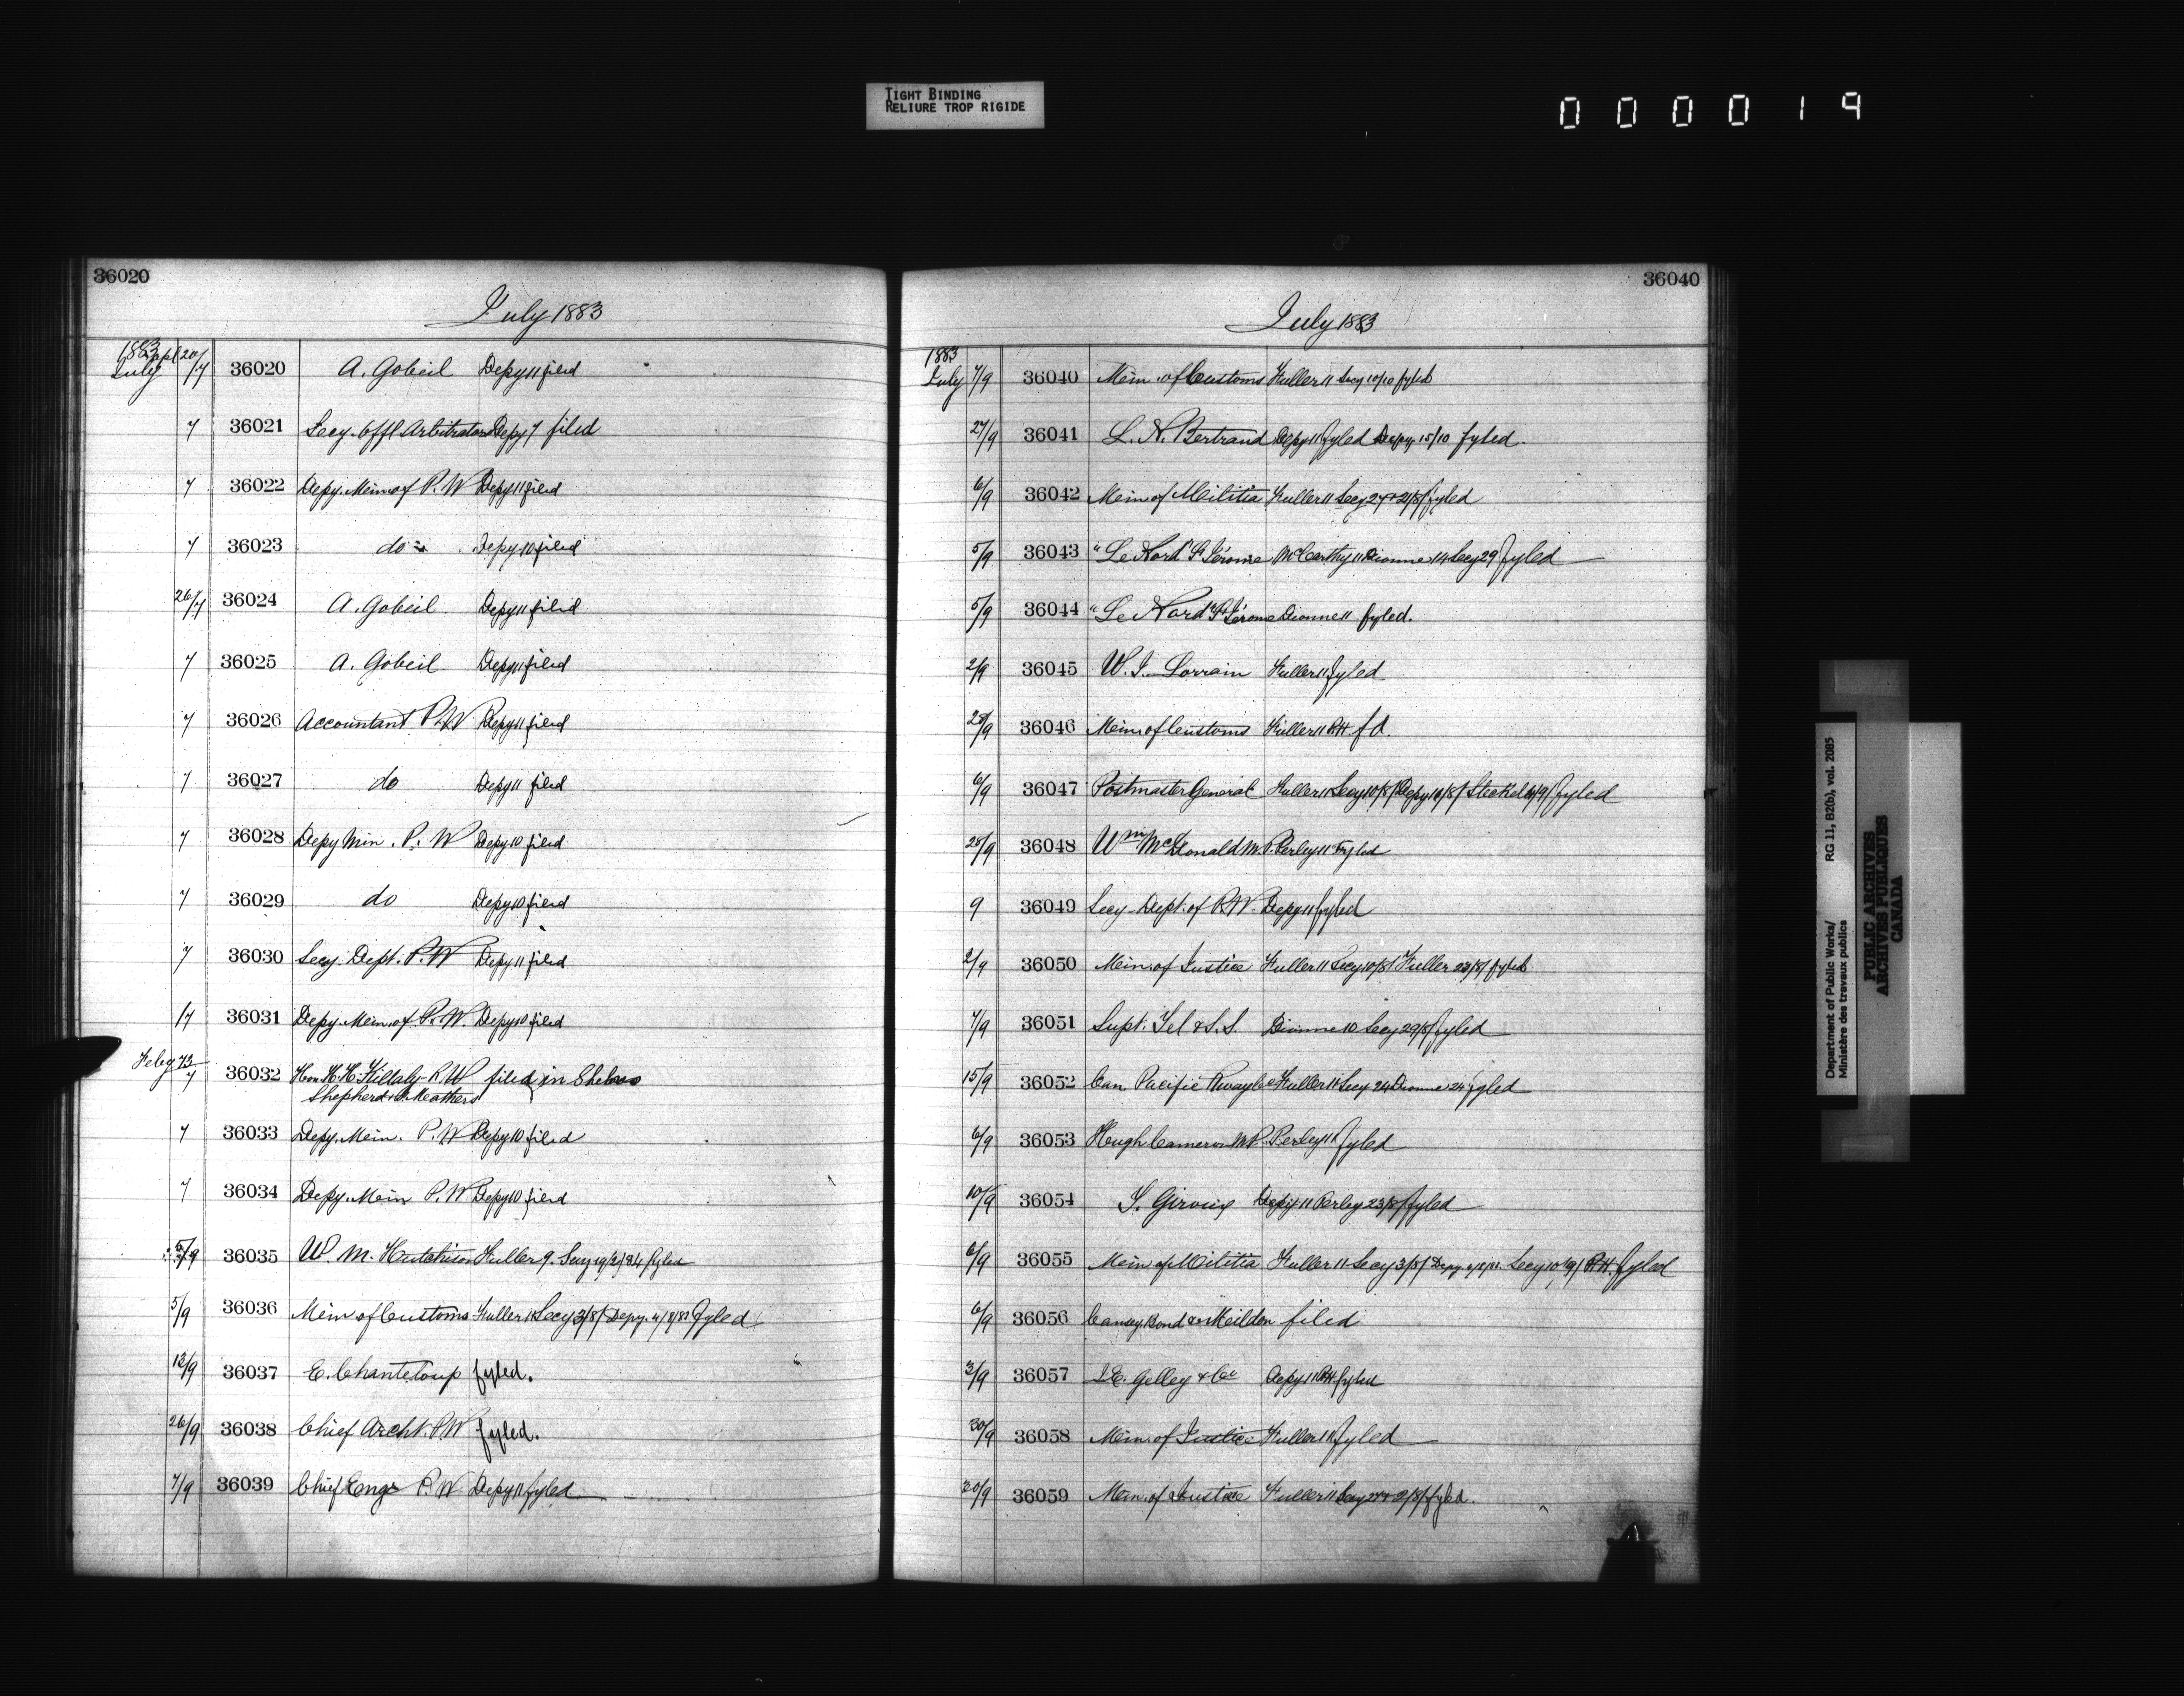 TIGHT BINDING
RELIURE TROP RIGIDE
000019
36020
July 1883
1883 Sept
July 20/7 36020 A. Gobeil Depy 11 filed
7 36021 Secy. Offl Arbitrators Depy 7 filed
7 36022 Depy. Min of P. W Depy 11 filed
7 36023 do Depy 10 filed
26/7 36024 A. Gobeil Depy 11 filed
7 36025 A. Gobeil Depy 11 filed
7 36026 Accountant P. W Depy 11 filed
7 36027 do Depy 11 filed
7 36028 Depy Min. P. W Depy 10 filed
7 36029 do Depy 10 filed
7 36030 Secy. Dept. P. W Depy 11 filed
17 36031 Depy. Min of P. W. Depy 10 filed
Feby 73/7 36032 Hon H. H. Killaly R. W filed in
Shepherd
7 36033 Depy. Min. P. W Depy 10 filed
7 36034 Depy. Min P. W Depy 10 filed
5/9 36035 W. M. Hutchison Fuller 9. Secy 19/2/84 fyled
5/9 36036 Min of Customs Fuller 11 Secy 3/8/ Depy. 4/8/83 fyled
13/9 36037 E. Chanteloup fyled.
26/9 36038 Chief Archt. P. W fyled.
7/9 36039 Chief Engr P. W Depy 11 fyled
36040
July 1883
1883
July 7/9 36040 Min. of Customs Fuller 11 Secy 10/10 fyled
27/9 36041 L. N. Bertrand Depy 11 fyled Depy. 15/10 fyled.
6/9 36042 Min of Militia Fuller 11 Secy 27 + 21/8/ fyled
5/9 36043 "Le Nord" St Jérome McCarthy 11 Dionne 14 Secy 29 fyled
5/9 36044 "Le Nord" St Jérome Dionne 11 fyled.
2/9 36045 W. J. Lorrain Fuller 11 fyled
28/9 36046 Min of Customs Fuller 11 RH fd.
6/9 36047 Postmaster General Fuller 11 Secy 10/8/ Depy 10/8/ Steckel 4/9/ fyled
28/9 36048 Wm McDonald M. P. Perley 11 Fyled
9 36049 Secy Dept. of P. W. Depy 11 fyled
2/9 36050 Min. of Justice Fuller 11 Secy 10/8/ Fuller 23/8/ fyled
7/9 36051 Supt. Tel & S. S. Dionne 10 Secy 29/8/ fyled
15/9 36052 Can Pacific Rwaylc Fuller 11 Secy 24 Dionne 24 fyled
6/9 36053 Hugh Cameron MP. Perley 11 fyled
10/9 36054 Giroux Depy 11 Perley 23/8/ fyled
6/9 36055 Min of Militia Fuller 11 Secy 3/8/ Depy. Secy 10/9/ RH. fyled
6/9 36056 Camsey Bond & filed
3/9 36057 J. E. Gelley & Co Depy 11 RH fyled
30/9 36058 Min. of Justice Fuller 11 fyled
20/9 36059 Min. of Justice Fuller 11 Secy 27 + 2/8/ fyled.
Department of Public Works/ RG 11, B2(b), vol. 2085
Ministère des travaux publics
PUBLIC ARCHIVES
ARCHIVES PUBLIQUES
CANADA